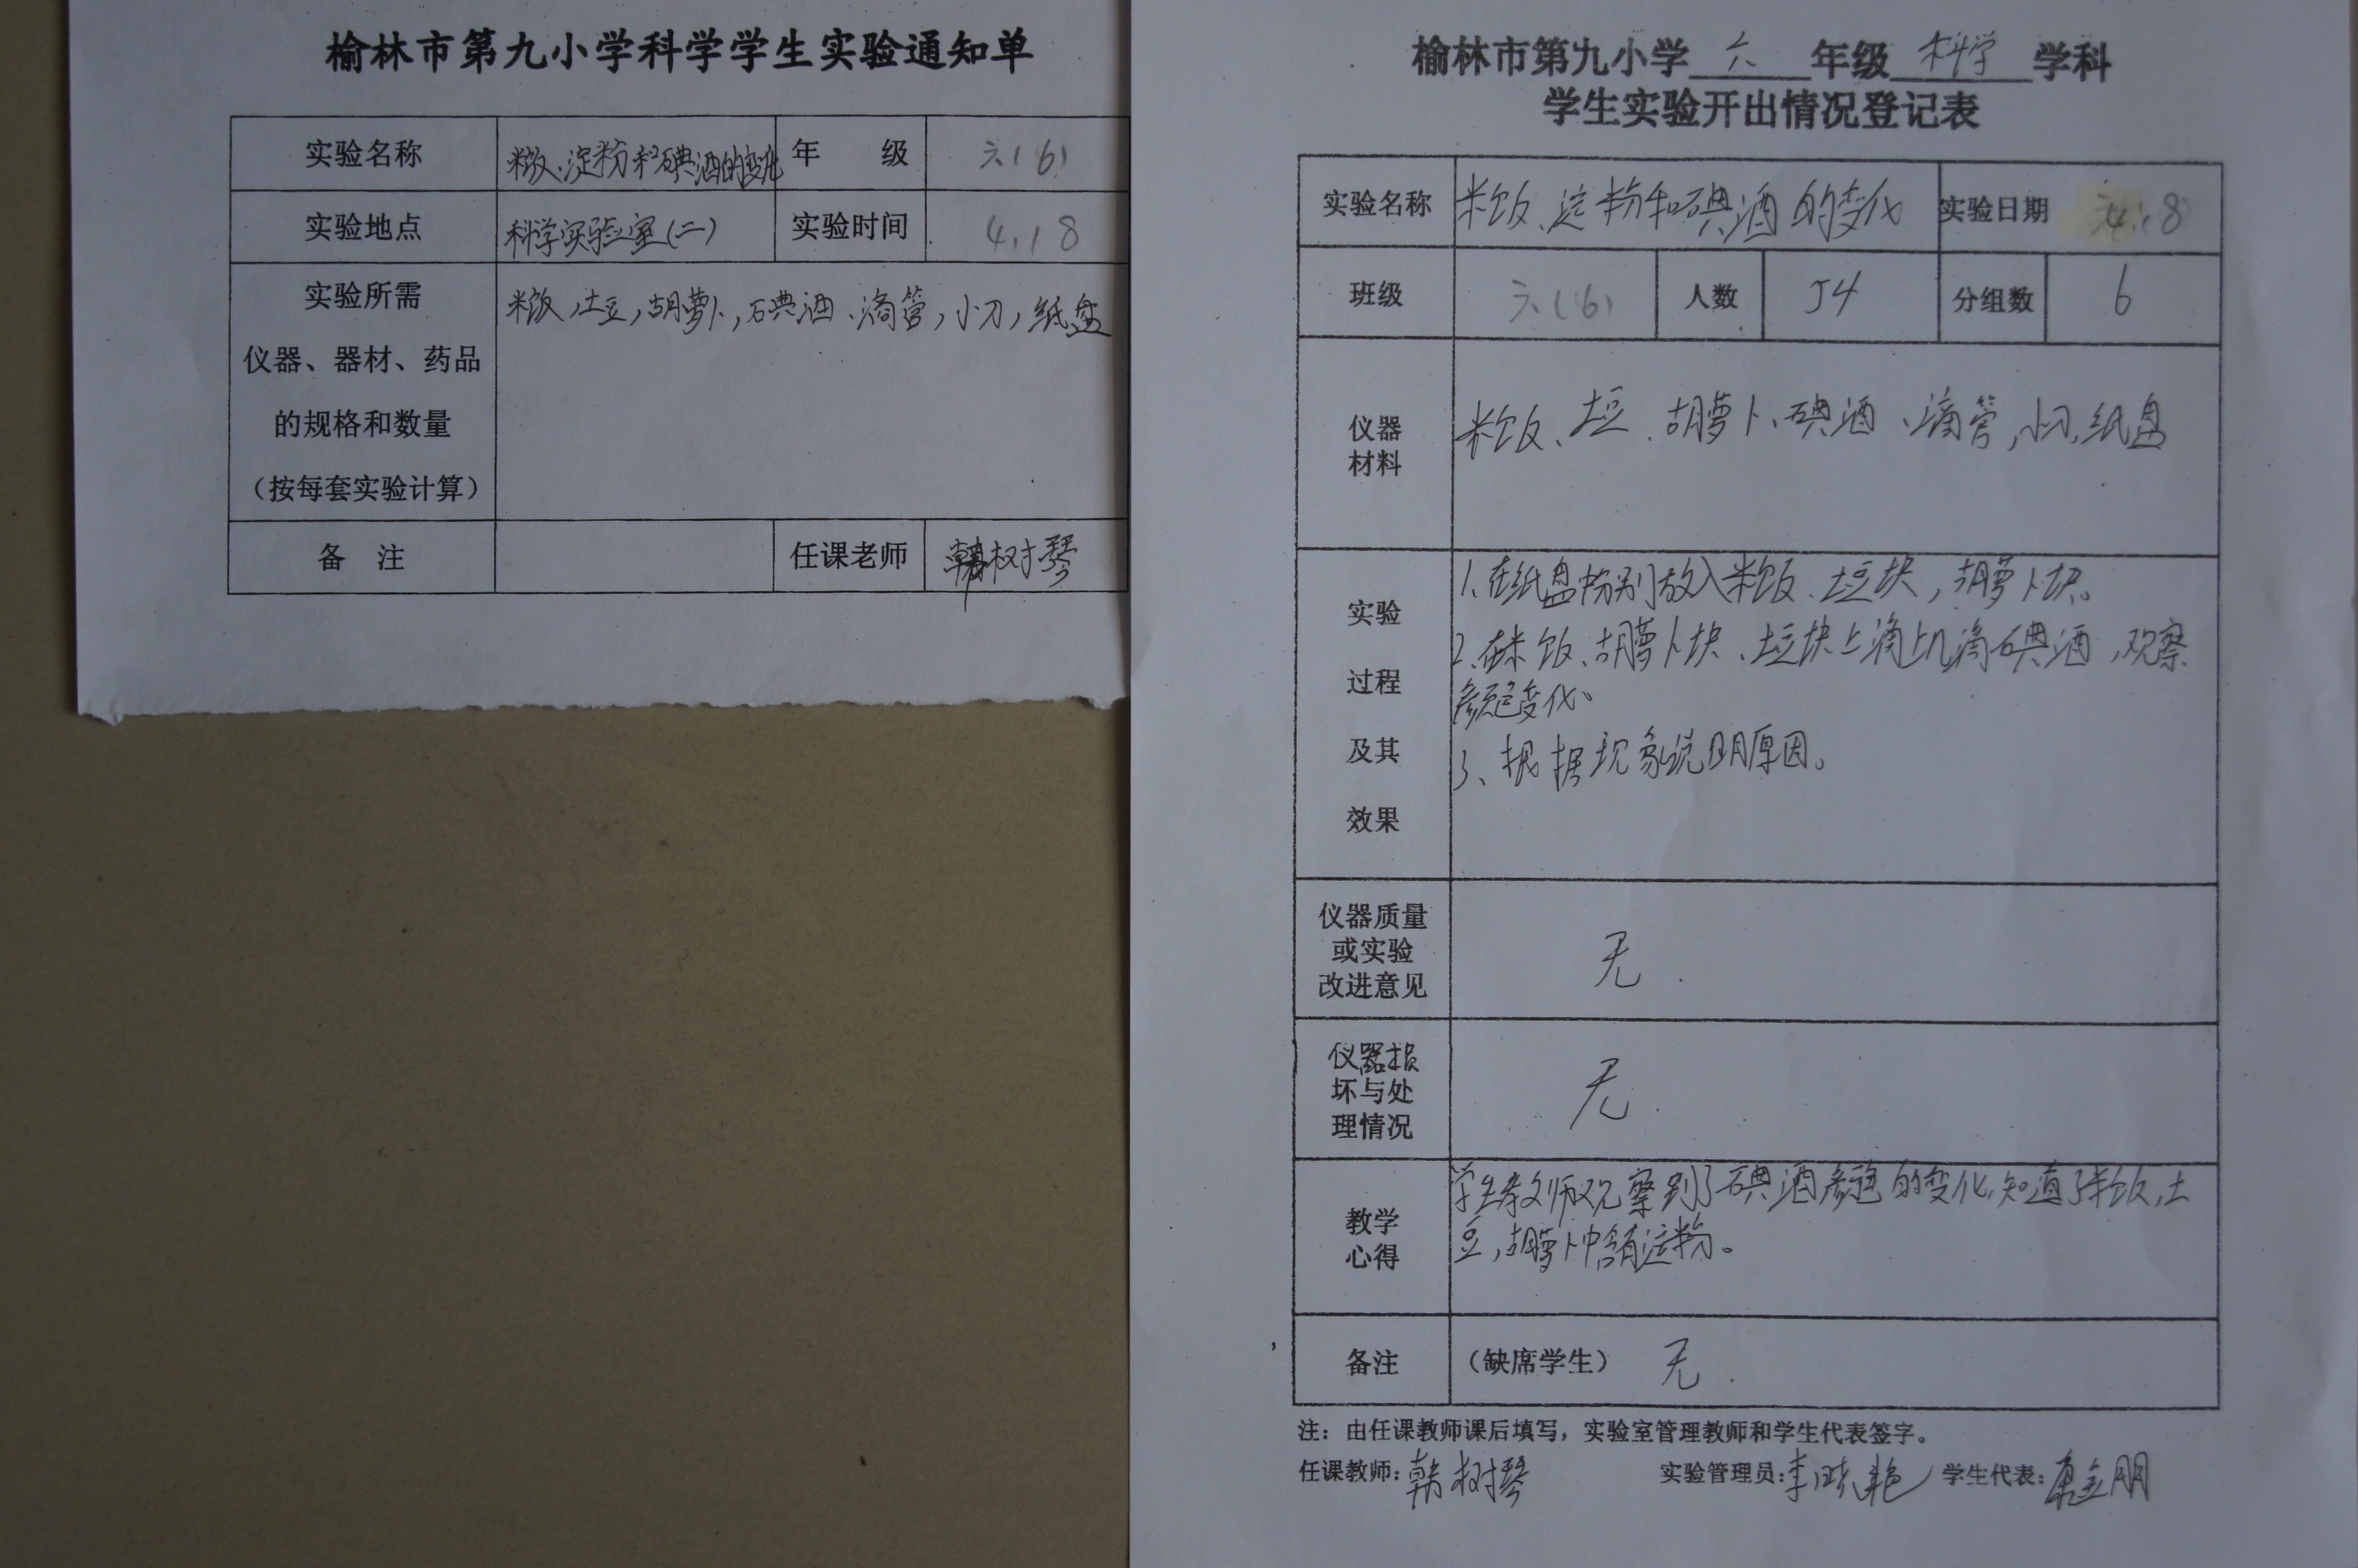 榆林市第九小学科学学生实验通知单
实验名称 米饭、淀粉和碘酒的变化 年 级 六(6)
实验地点 科学实验室(二) 实验时间 4.18
实验所需
仪器、器材、药品
的规格和数量
(按每套实验计算)
米饭,土豆,胡萝卜,碘酒、滴管,小刀,纸盘
备 注 任课老师 韩树琴
榆林市第九小学 六 年级 科学 学科
学生实验开出情况登记表
实验名称 米饭、淀粉和碘酒的变化 实验日期 4.18
班级 六(6) 人数 54 分组数 6
仪器
材料
米饭、土豆、胡萝卜、碘酒、滴管,小刀,纸盘
实验
过程
及其
效果
1.在纸盘中分别放入米饭、土豆块,胡萝卜块。
2、在米饭、胡萝卜块、土豆块上滴上几滴碘酒,观察
颜色变化、
3、根据现象说明原因。
仪器质量
或实验
改进意见
无.
仪器损
坏与处
理情况
无.
教学
心得
学生教师观察到了碘酒颜色的变化,知道了米饭,土
豆,胡萝卜中含有淀粉。
备注 (缺席学生) 无.
注:由任课教师课后填写,实验室管理教师和学生代表签字。
任课教师:韩树琴 实验管理员:李晓艳 学生代表: